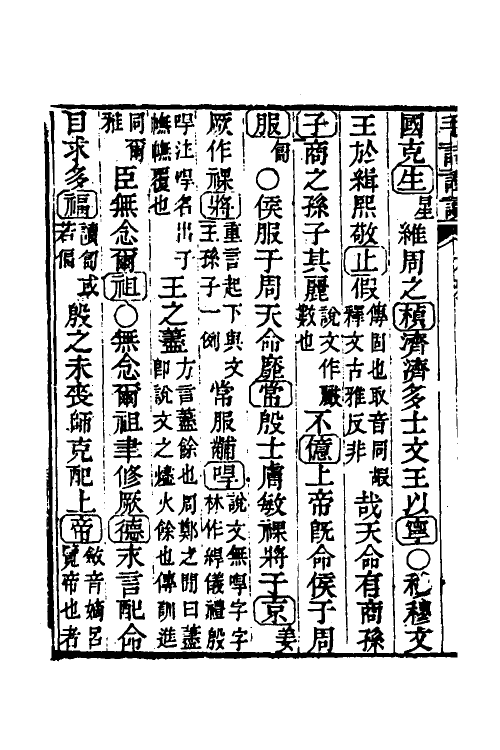 國克生星維周之楨濟濟多士文王以寧〇穆穆文
王於緝熙敬止假傳固也取音同嘏釋文古雅反非哉天命有商孫
子商之孫子其麗說文作數也不億上帝既命侯于周
服匐〇侯服于周天命靡常殷士膚敏祼將于京姜
厥作祼將重言起下與文王孫子一例常服黼冔說文無冔字字林作綒儀禮殷
冔注冔名出于幠幠覆也王之藎方言藎餘也周鄭之閒曰藎卽說文之火餘也傳訓進
同爾雅臣無念爾祖〇無念爾祖聿修厥德永言配命
自求多福讀匐或若偪殷之未喪師克配上帝音嫡呂覽帝也者